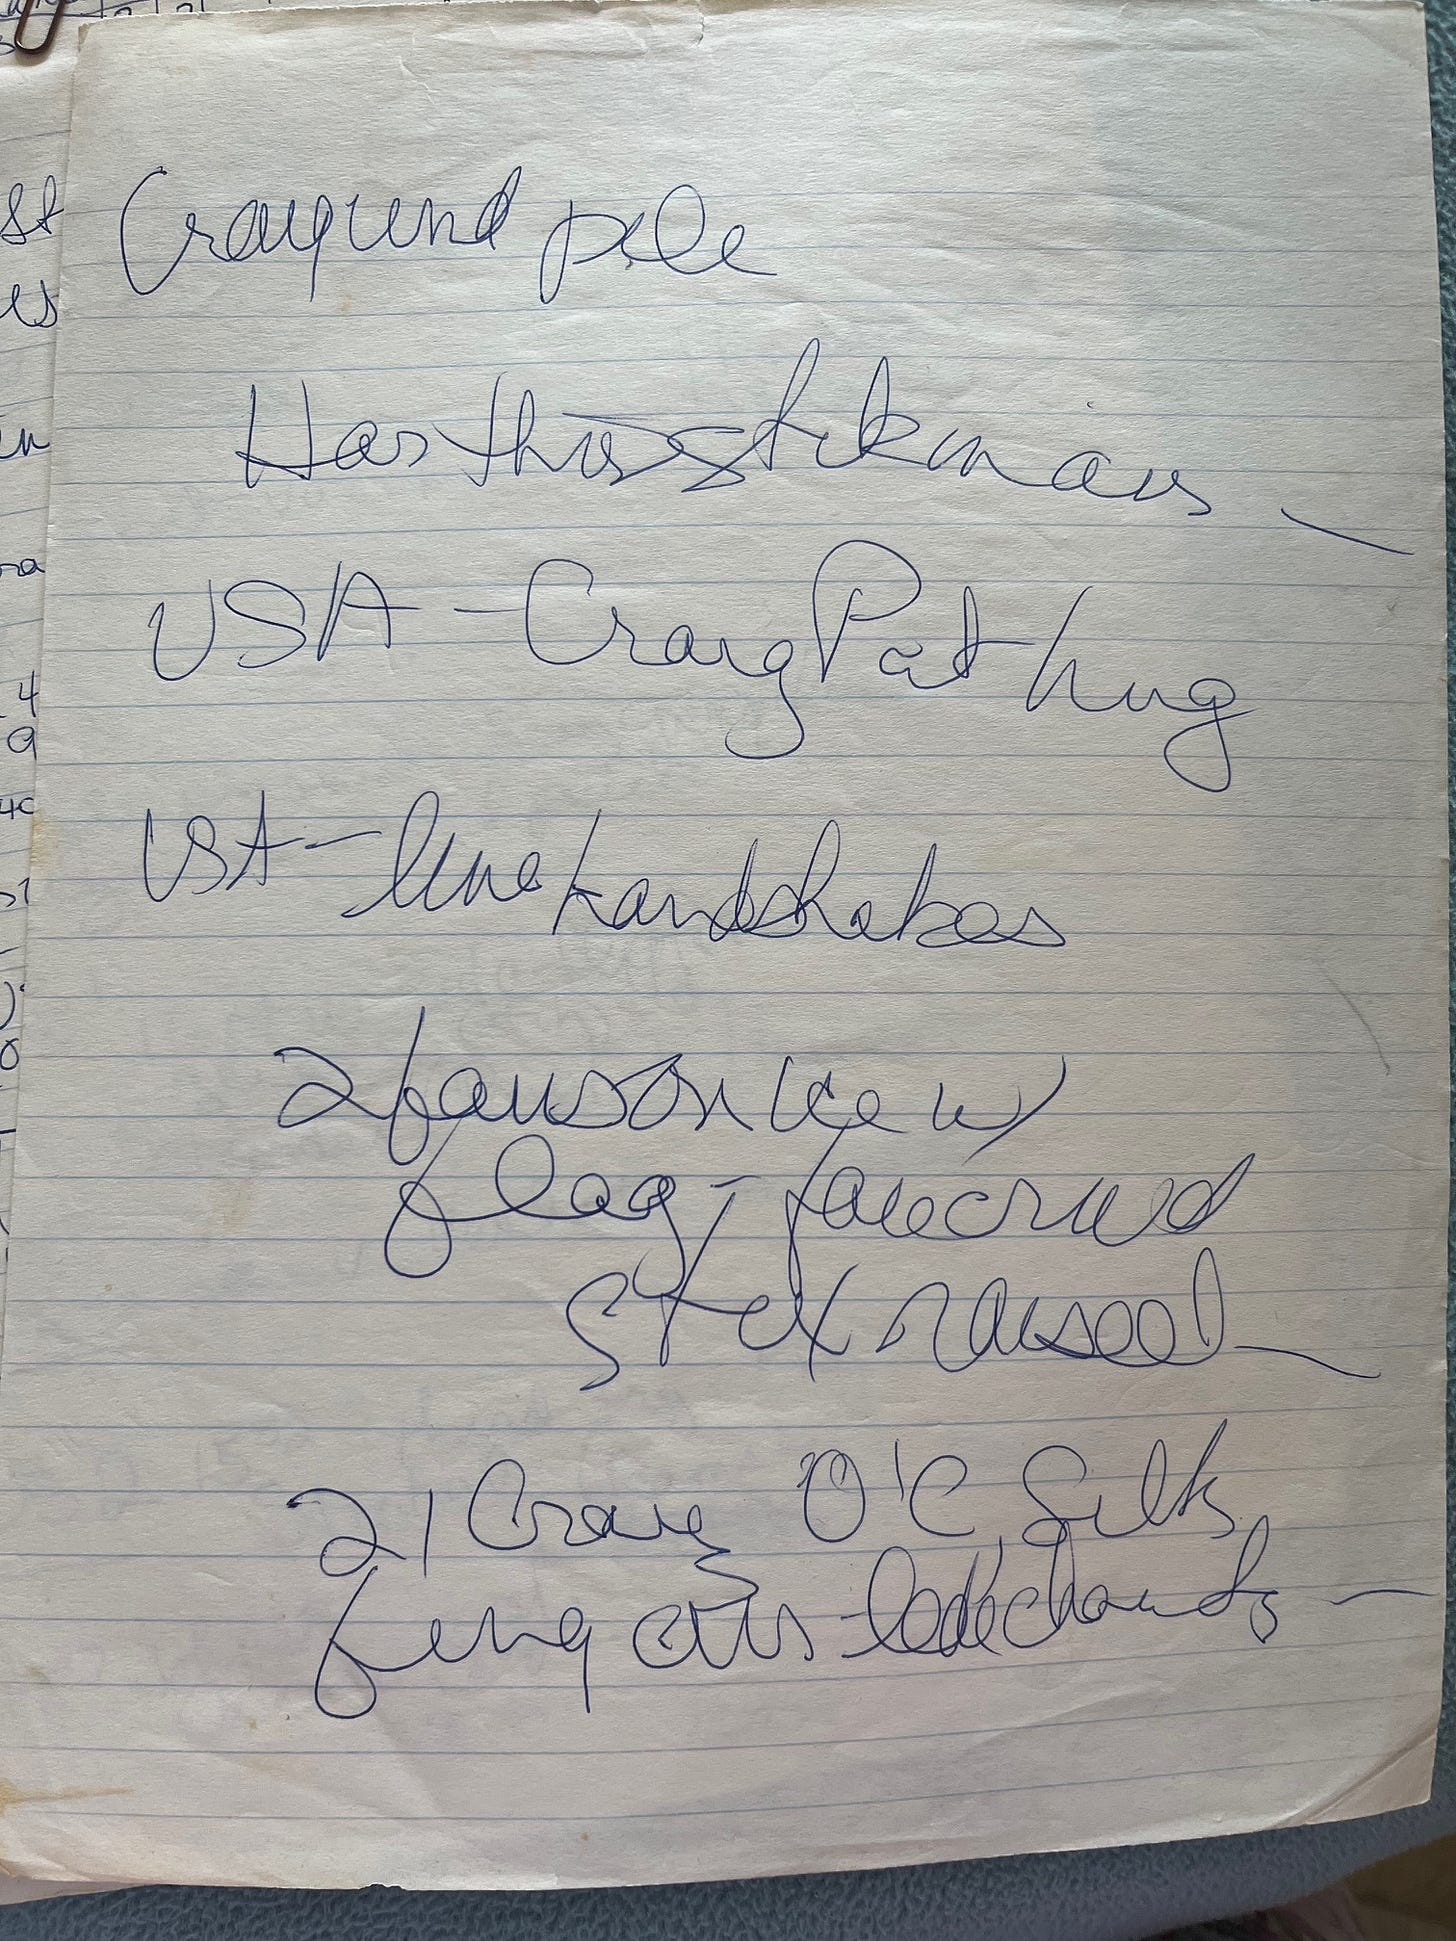 Craig und pile
Has this stickmans —
USA - Craig Pat hug
USA - line handshakes
2 fans on ice w/
flag - face crowd
Stick raised —
21 Craig O'C, Silk
fing cross - led chants —